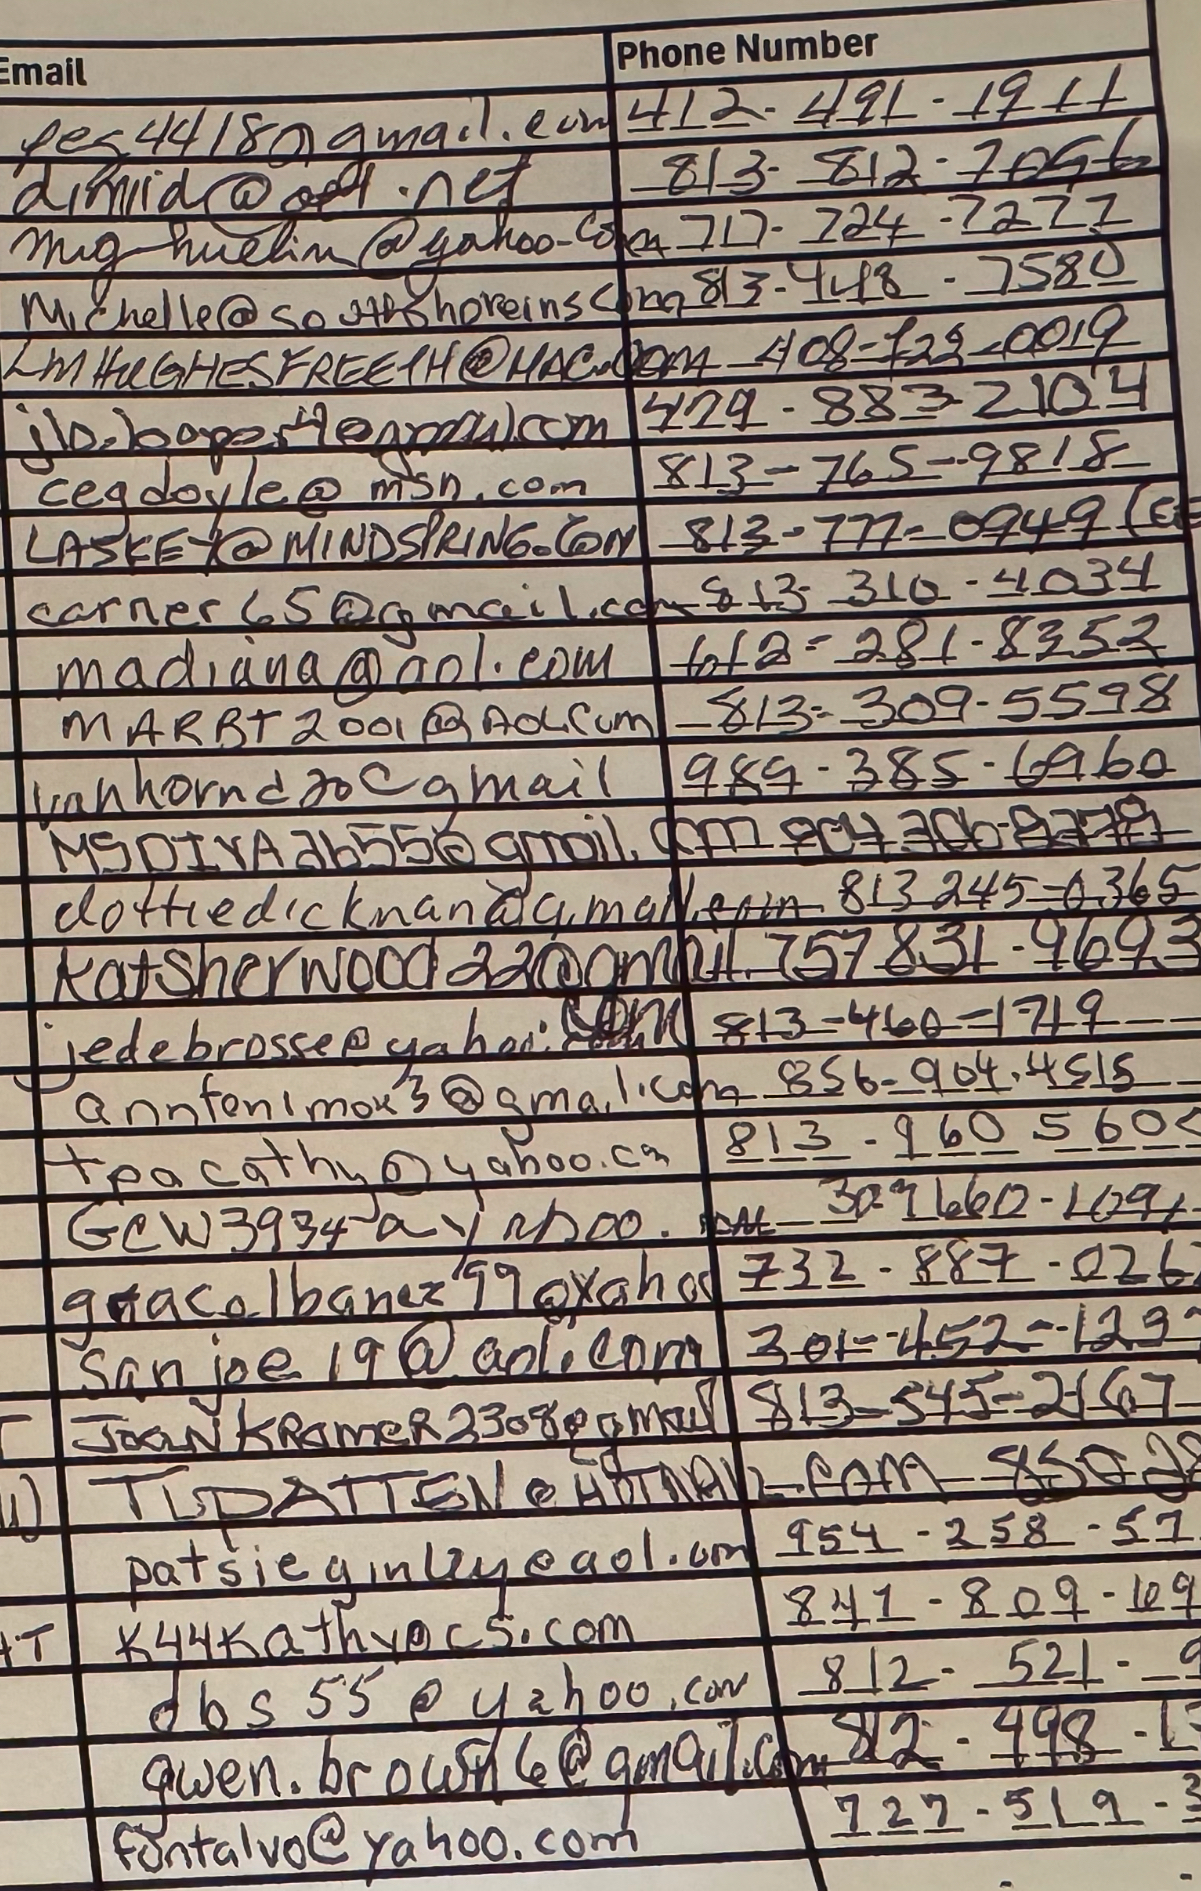 Email Phone Number
412-491-1911
813-812-7056
@yahoo.com 717-724-7277
Michelle@southshoreins.com 813-448-7580
LMHUGHESFREETH@MAC.COM 408-429-0019
479-883-2104
cegdoyle@msn.com 813-765-9818
LASKEY@MINDSPRING.COM 813-777-0949
carner65@gmail.com 813-310-4034
madiana@aol.com 612-281-8352
MARBT2001@AOL.Com 813-309-5598
vanhornd20@gmail 989-385-6960
MSDIVAdb55@gmail.com
dottiedickman@gmail.com 813 245-0365
Katsherwood22@gmail. 757 831-9693
jedebrosse@yahoo.com 813-460-1719
annfenimor3@gmail.com 856-904-4515
tpacathy@yahoo.com 813-960 5605
GCW3934
732-887-026
sanjoe19@aol.com 301-452-129
JoanKRameR2308@gmail 813-545-2167
TLPATTEN@HOTMAIL.COM 850
patsieginley@aol.com 954-258-57
K44Kathy@cs.com 841-809-109
dbs55@yahoo.com 812-521-9
gwen.brown6@gmail.com 812-498-1
fontalvo@yahoo.com 727-519-3